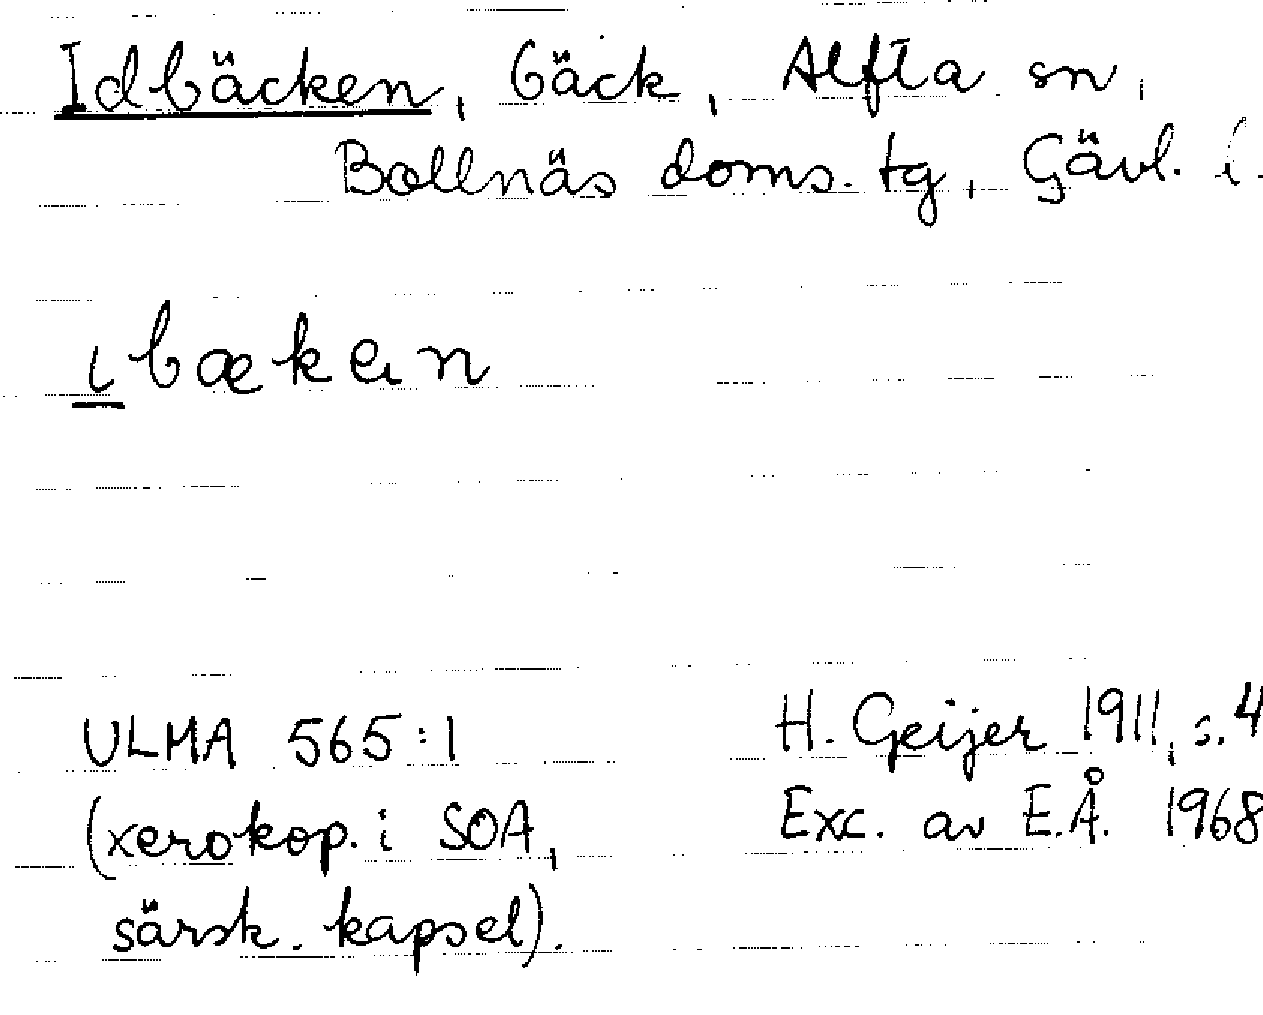 Idbäcken, bäck, Alfta sn,
Bollnäs doms. tg, Gävl. l.
ibækan
ULMA 565:1
(xerokop. i SOA,
särsk. kapsel).
H. Geijer 1911, s. 4
Exc. av E.Å. 1968